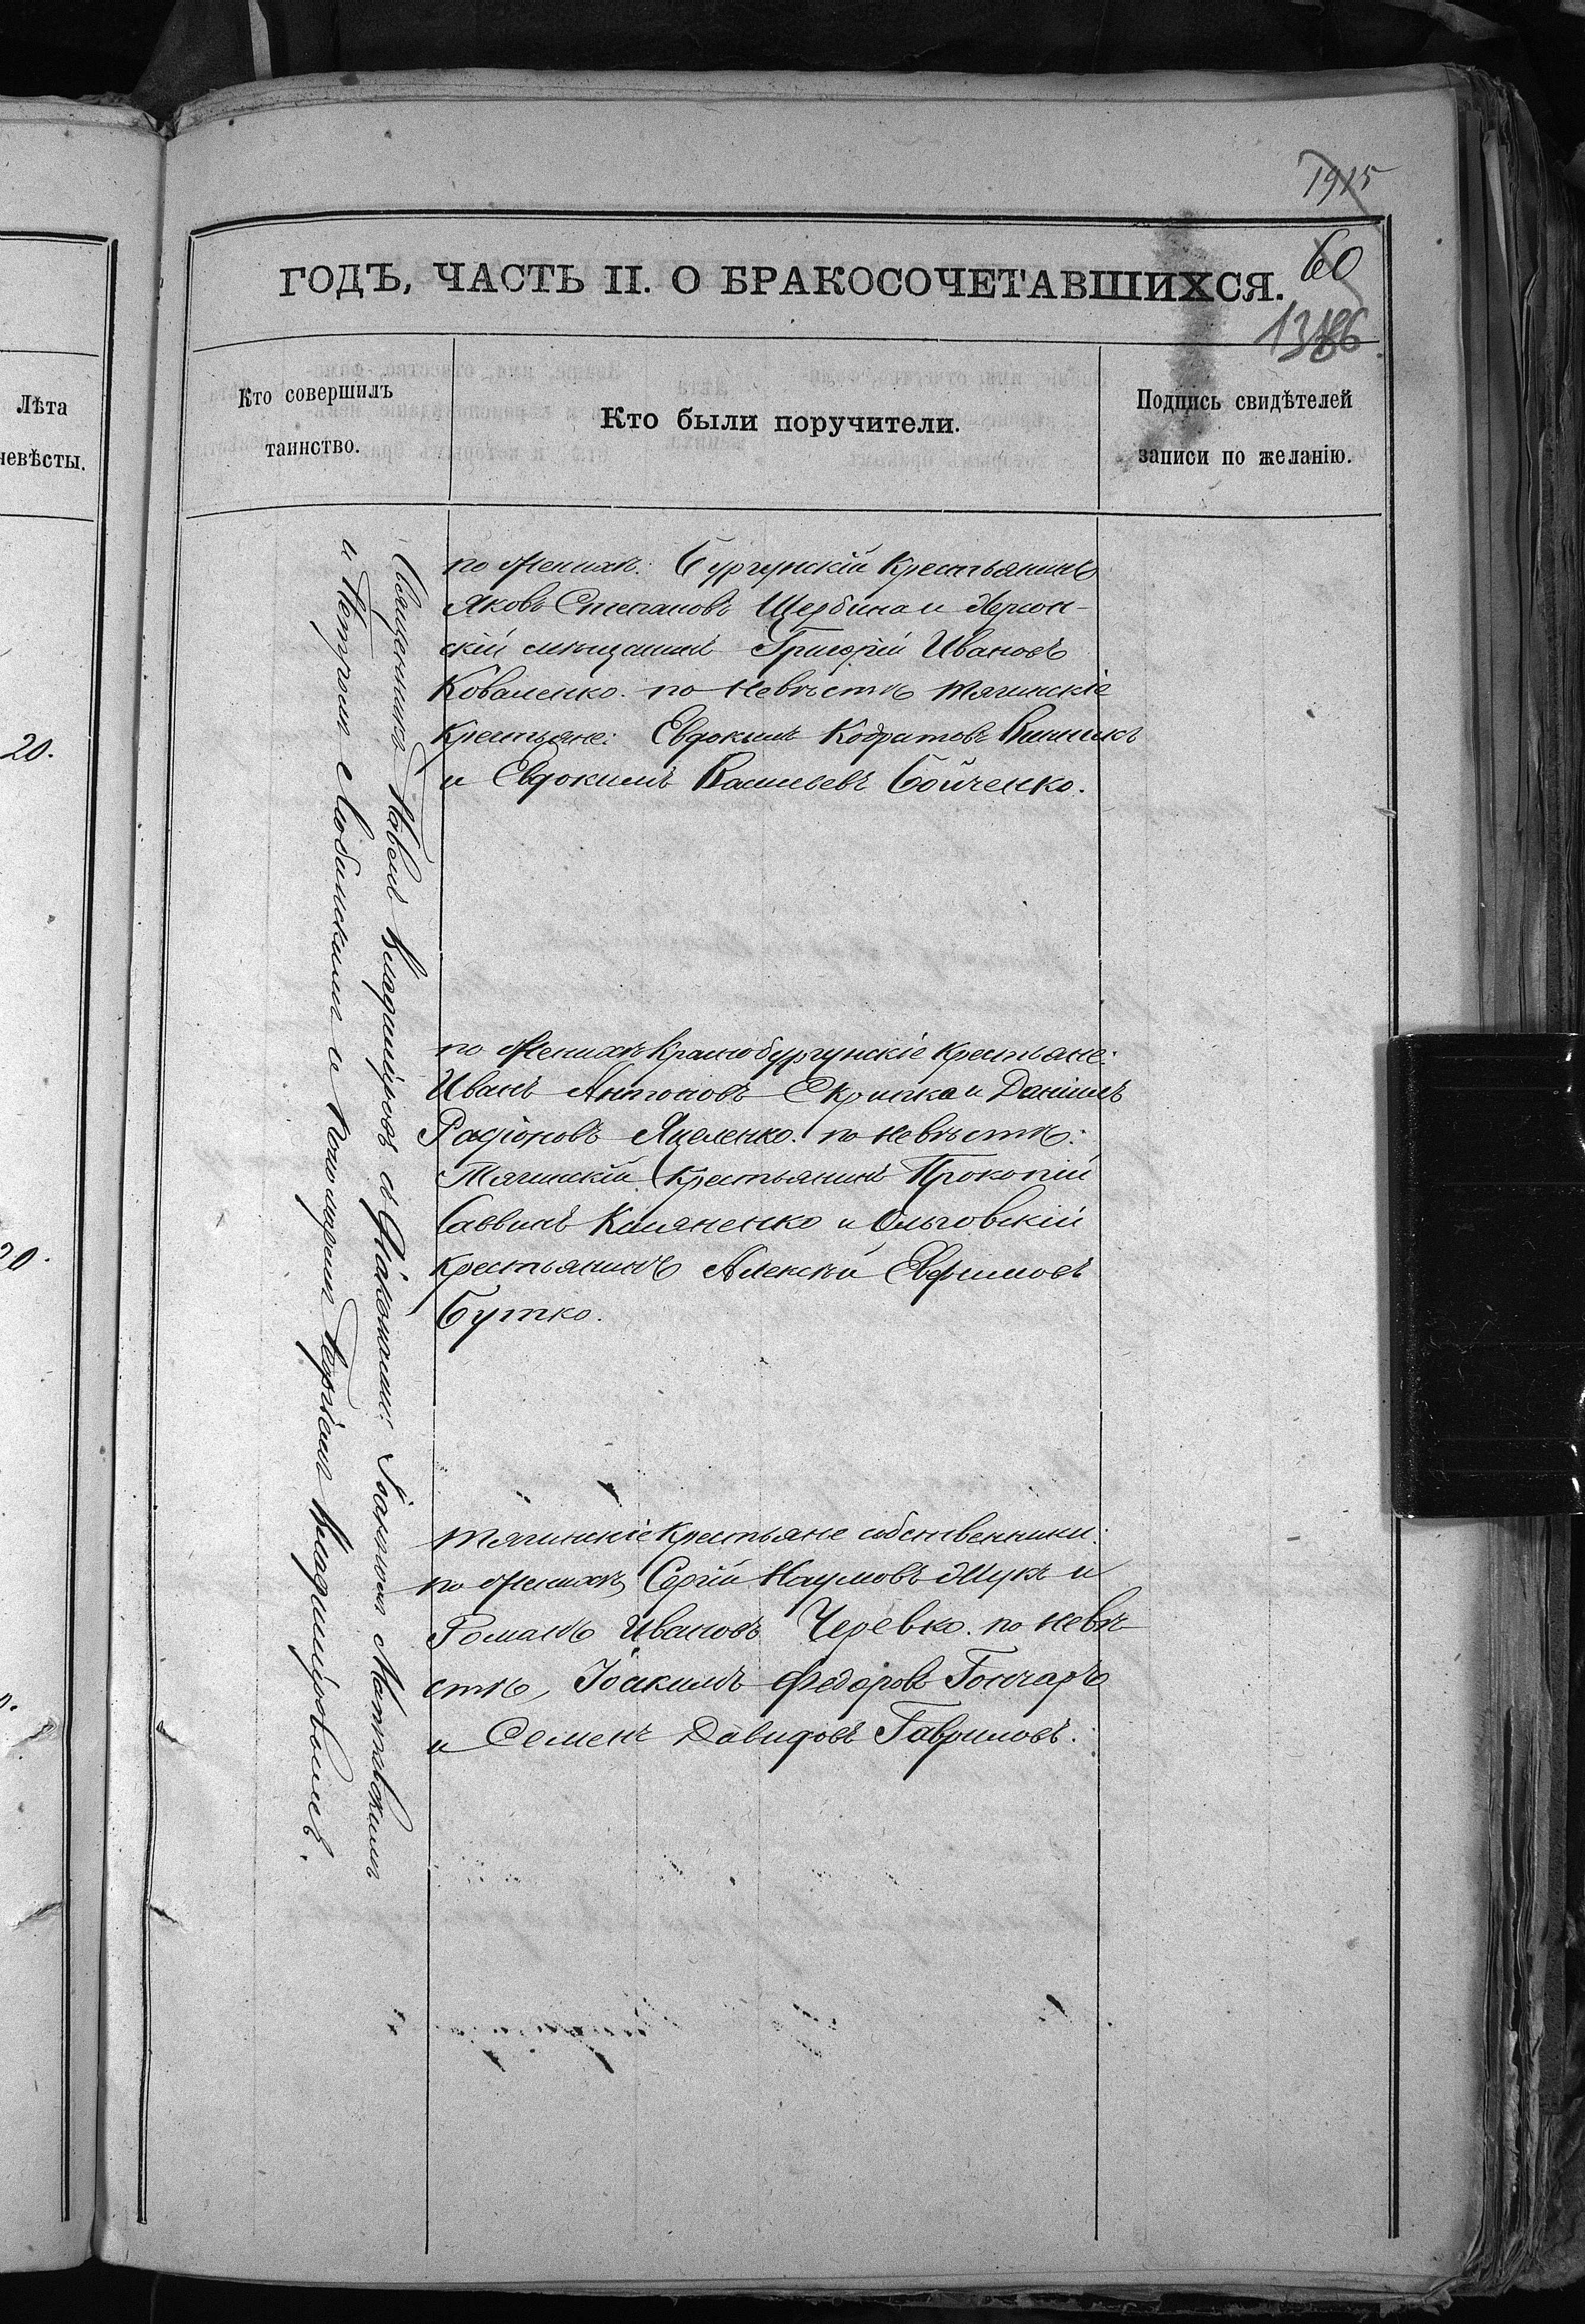 1915
60
1386
ГОДЪ, ЧАСТЬ II. О БРАКОСОЧЕТАВШИХСЯ.
Лѣта
невѣсты.
20.
20.
Кто совершилъ
таинство.
Кто были поручители.
Подпись свидѣтелей
записи по желанію.
Священникъ Павелъ Владиміровъ съ Діаконами: Іоакимомъ Матковскимъ
и Петромъ Любинскимъ и Пономаремъ Георгіемъ Владиміровымъ.
по женихѣ: Бургунскій крестьянинъ
Яковъ Степановъ Щербина и Херсон-
скій мѣщанинъ Григорій Ивановъ
Коваленко. по невѣстѣ Тягинскіе
крестьяне: Евдокимъ Кодратовъ
и Евдокимъ Васильевъ Бойченко.
по женихѣ Краснобургунскіе крестьяне:
Иванъ Антоновъ Скрипка и Даніилъ
Радіоновъ Яценко. по невѣстѣ:
Тягинскій крестьянинъ Прокопій
Саввинъ Касяненко и Ольговскій
крестьянинъ Алексѣй Евфимовъ
Бутко.
Тягинскіе крестьяне собственники:
по женихѣ, Сергій Наумовъ Жукъ и
Романъ Ивановъ Черевко. по невѣ-
стѣ, Іоакимъ Федоровъ Гончаръ
и Семенъ Давидовъ Гавриловъ.